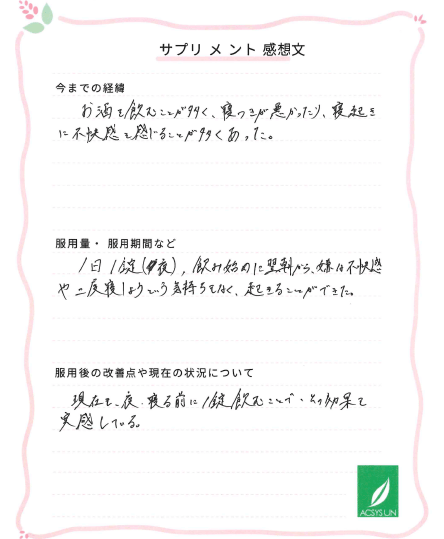 サプリメント感想文
今までの経緯
お酒を飲むことが多く、寝つきが悪かったり、寝起き
に不快感を感じることが多くあった。
服用量・服用期間など
1日1錠(夜)、飲み始めに翌朝から、嫌な不快感
や二度寝しようという気持ちもなく、起きることができた。
服用後の改善点や現在の状況について
現在も、夜、寝る前に1錠飲むことで、その効果を
実感している。
ACSYS UN